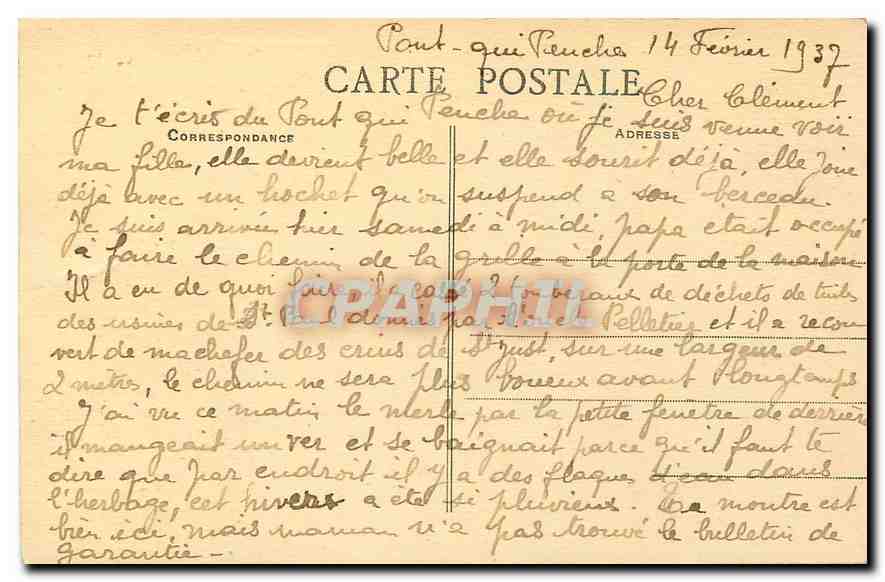 Pont-qui Penche 14 Février 1937
CARTE POSTALE
Cher Clément
Je t'écris du Pont qui Penche où je suis venue voir
CORRESPONDANCE
ADRESSE
ma fille, elle devient belle et elle sourit déjà, elle joue
déjà avec un hochet qu'on suspend à son berceau.
Je suis arrivée hier samedi à midi, papa etait occupé
à faire le chemin de la grille à la porte de la maison
Il a eu de quoi faire il a cassé 2 tombereaux de déchets de tuiles
des usines de St. Paul donnés par l'oncle Pelletier et il a recou
vert de machefer des crius de St Just, sur une largeur de
2 mètres, le chemin ne sera plus boueux avant longtamps
J'ai vu ce matin le merle par la petite fenetre de derrière
il mangeait un ver et se baignait parce qu'il faut te
dire que par endroit il y a des flaques d'eau dans
l'herbage, cet hivers a été si pluvieux. Ta montre est
bien ici, mais maman n'a pas trouvé le bulletin de
garantie -
CPAPHIL